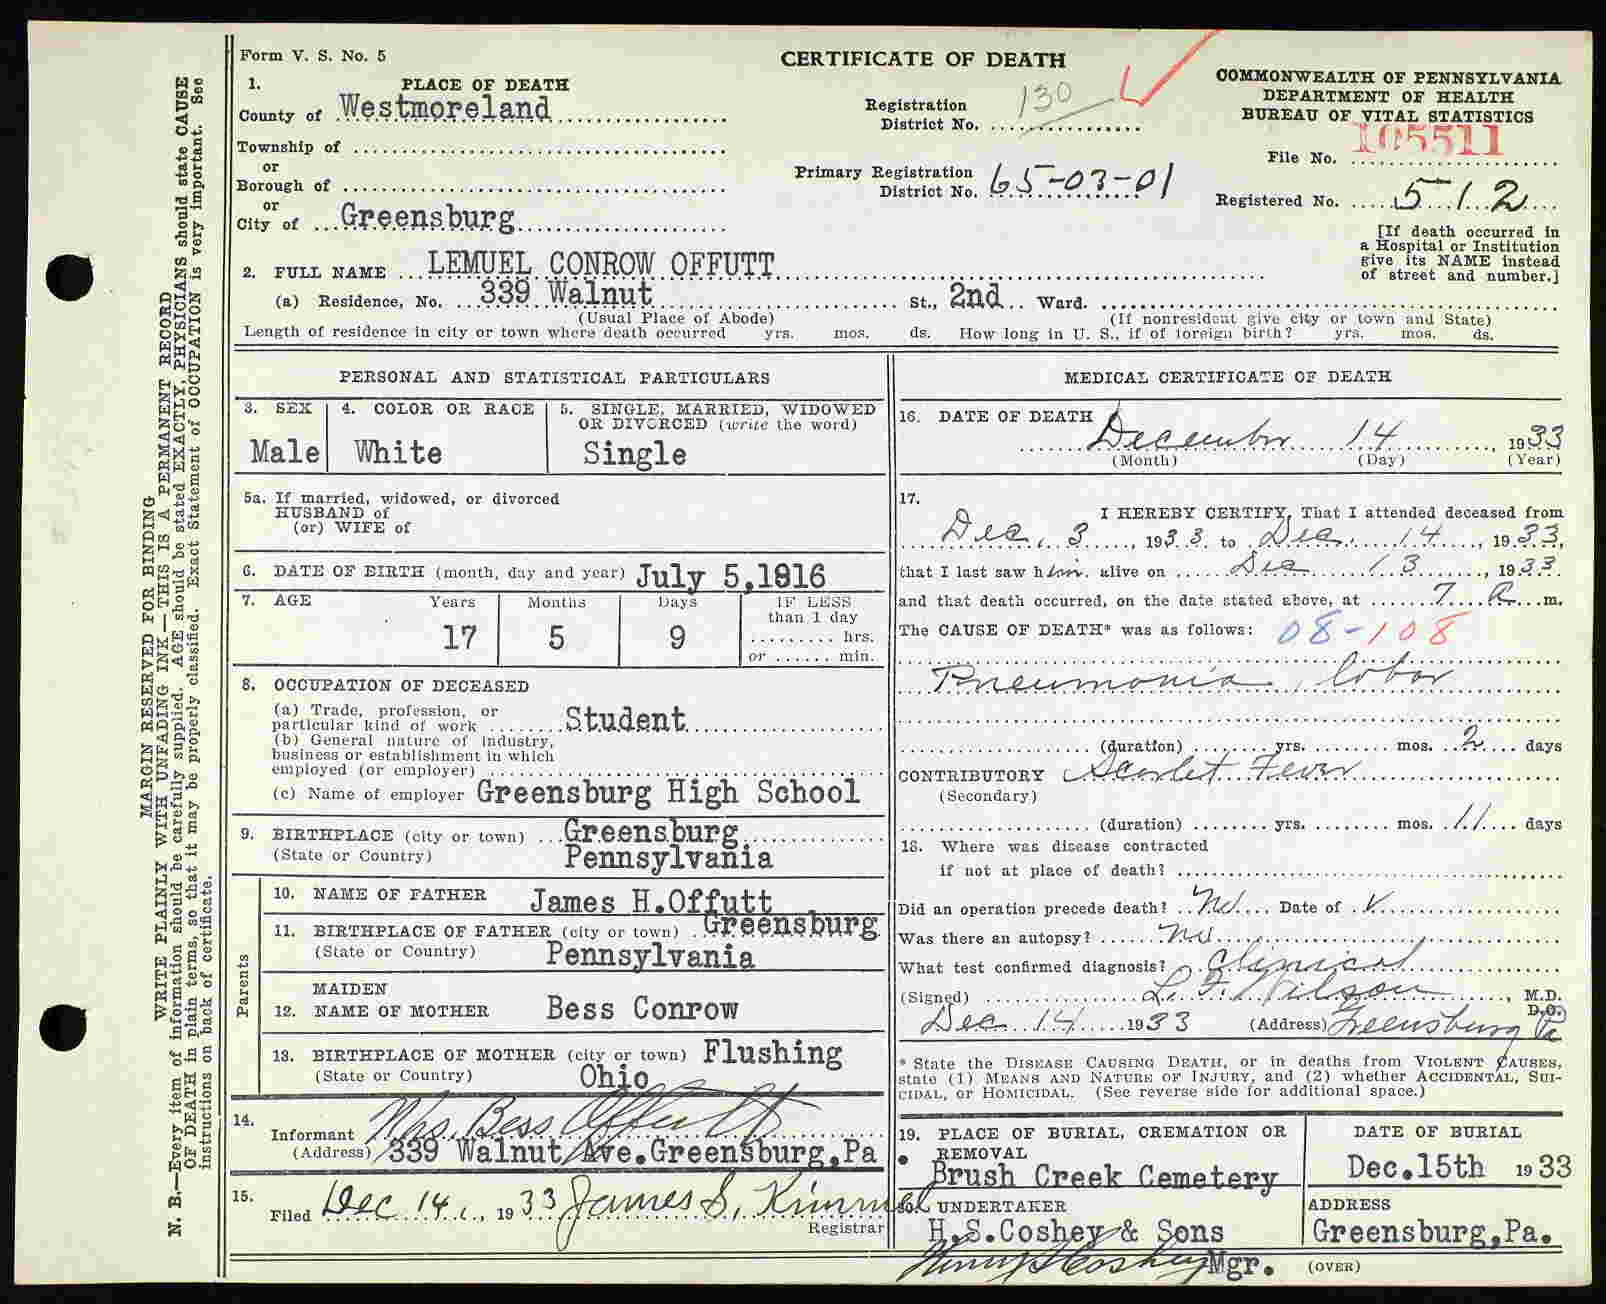 Form V. S. No. 5
CERTIFICATE OF DEATH
COMMONWEALTH OF PENNSYLVANIA
DEPARTMENT OF HEALTH
BUREAU OF VITAL STATISTICS
1. PLACE OF DEATH
County of Westmoreland
Township of
or
Borough of
or
City of Greensburg
Registration District No. 130
Primary Registration District No. 65-03-01
File No. 105511
Registered No. 512
[If death occurred in
a Hospital or Institution
give its NAME instead
of street and number.]
2. FULL NAME LEMUEL CONROW OFFUTT
(a) Residence, No. 339 Walnut St., 2nd Ward.
(Usual Place of Abode) (If nonresident give city or town and State)
Length of residence in city or town where death occurred yrs. mos. ds. How long in U. S., if of foreign birth? yrs. mos. ds.
PERSONAL AND STATISTICAL PARTICULARS
3. SEX
Male
4. COLOR OR RACE
White
5. SINGLE, MARRIED, WIDOWED
OR DIVORCED (write the word)
Single
5a. If married, widowed, or divorced
HUSBAND of
(or) WIFE of
6. DATE OF BIRTH (month, day and year) July 5,1916
7. AGE Years Months Days IF LESS than 1 day
17 5 9 hrs.
or min.
8. OCCUPATION OF DECEASED
(a) Trade, profession, or
particular kind of work Student
(b) General nature of industry,
business or establishment in which
employed (or employer)
(c) Name of employer Greensburg High School
9. BIRTHPLACE (city or town) Greensburg
(State or Country) Pennsylvania
Parents
10. NAME OF FATHER James H.Offutt
11. BIRTHPLACE OF FATHER (city or town) Greensburg
(State or Country) Pennsylvania
12. MAIDEN NAME OF MOTHER Bess Conrow
13. BIRTHPLACE OF MOTHER (city or town) Flushing
(State or Country) Ohio
14. Informant Mrs. Bess Offutt
(Address) 339 Walnut Ave.Greensburg,Pa
15. Filed Dec 14, 1933 James S. Kimmel
Registrar
MEDICAL CERTIFICATE OF DEATH
16. DATE OF DEATH
December 14, 1933
(Month) (Day) (Year)
17. I HEREBY CERTIFY, That I attended deceased from
Dec. 3, 1933 to Dec. 14, 1933,
that I last saw him alive on Dec 13, 1933
and that death occurred, on the date stated above, at 7 A m.
The CAUSE OF DEATH* was as follows: 08-108
Pneumonia, lobar
(duration) yrs. mos. 2 days
CONTRIBUTORY Scarlet Fever
(Secondary)
(duration) yrs. mos. 11 days
18. Where was disease contracted
if not at place of death?
Did an operation precede death? No Date of
Was there an autopsy? no
What test confirmed diagnosis? Clinical
(Signed) L. F. Wilson, M.D.
D.O.
Dec 14 1933 (Address) Greensburg Pa
* State the DISEASE CAUSING DEATH, or in deaths from VIOLENT CAUSES,
state (1) MEANS AND NATURE OF INJURY, and (2) whether ACCIDENTAL, SUI-
CIDAL, or HOMICIDAL. (See reverse side for additional space.)
19. PLACE OF BURIAL, CREMATION OR
REMOVAL
Brush Creek Cemetery
DATE OF BURIAL
Dec.15th 1933
20. UNDERTAKER
H.S.Coshey & Sons
Henry S Coshey Mgr.
ADDRESS
Greensburg,Pa.
(OVER)
MARGIN RESERVED FOR BINDING
WRITE PLAINLY WITH UNFADING INK—THIS IS A PERMANENT RECORD
N. B.—Every item of information should be carefully supplied. AGE should be stated EXACTLY, PHYSICIANS should state CAUSE
OF DEATH in plain terms, so that it may be properly classified. Exact Statement of OCCUPATION is very important. See
instructions on back of certificate.